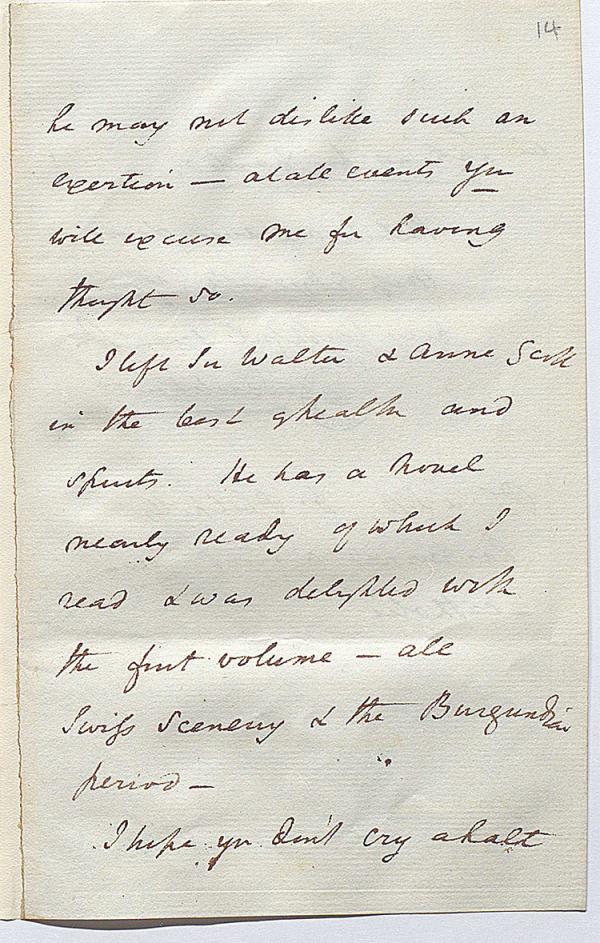 14
he may not dislike such an
exertion — at all events you
will excuse me for having
thought so.
I left Sir Walter & Anne Scott
in the best of health and
spirits. He has a novel
nearly ready of which I
read & was delighted with
the first volume — all
Swiss Scenery & the Burgundian
period —
I hope you don't cry a halt